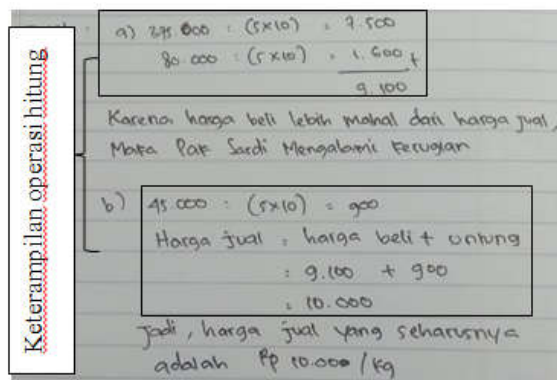 Keterampilan operasi hitung
a) 375.000 : (5x10) = 7.500
80.000 : (5x10) = 1.600 +
9.100
Karena harga beli lebih mahal dari harga jual,
Maka Pak Sardi Mengalami kerugian
b) 45.000 : (5x10) = 900
Harga jual = harga beli + untung
= 9.100 + 900
= 10.000
Jadi, harga jual yang seharusnya
adalah Rp 10.000 / Kg